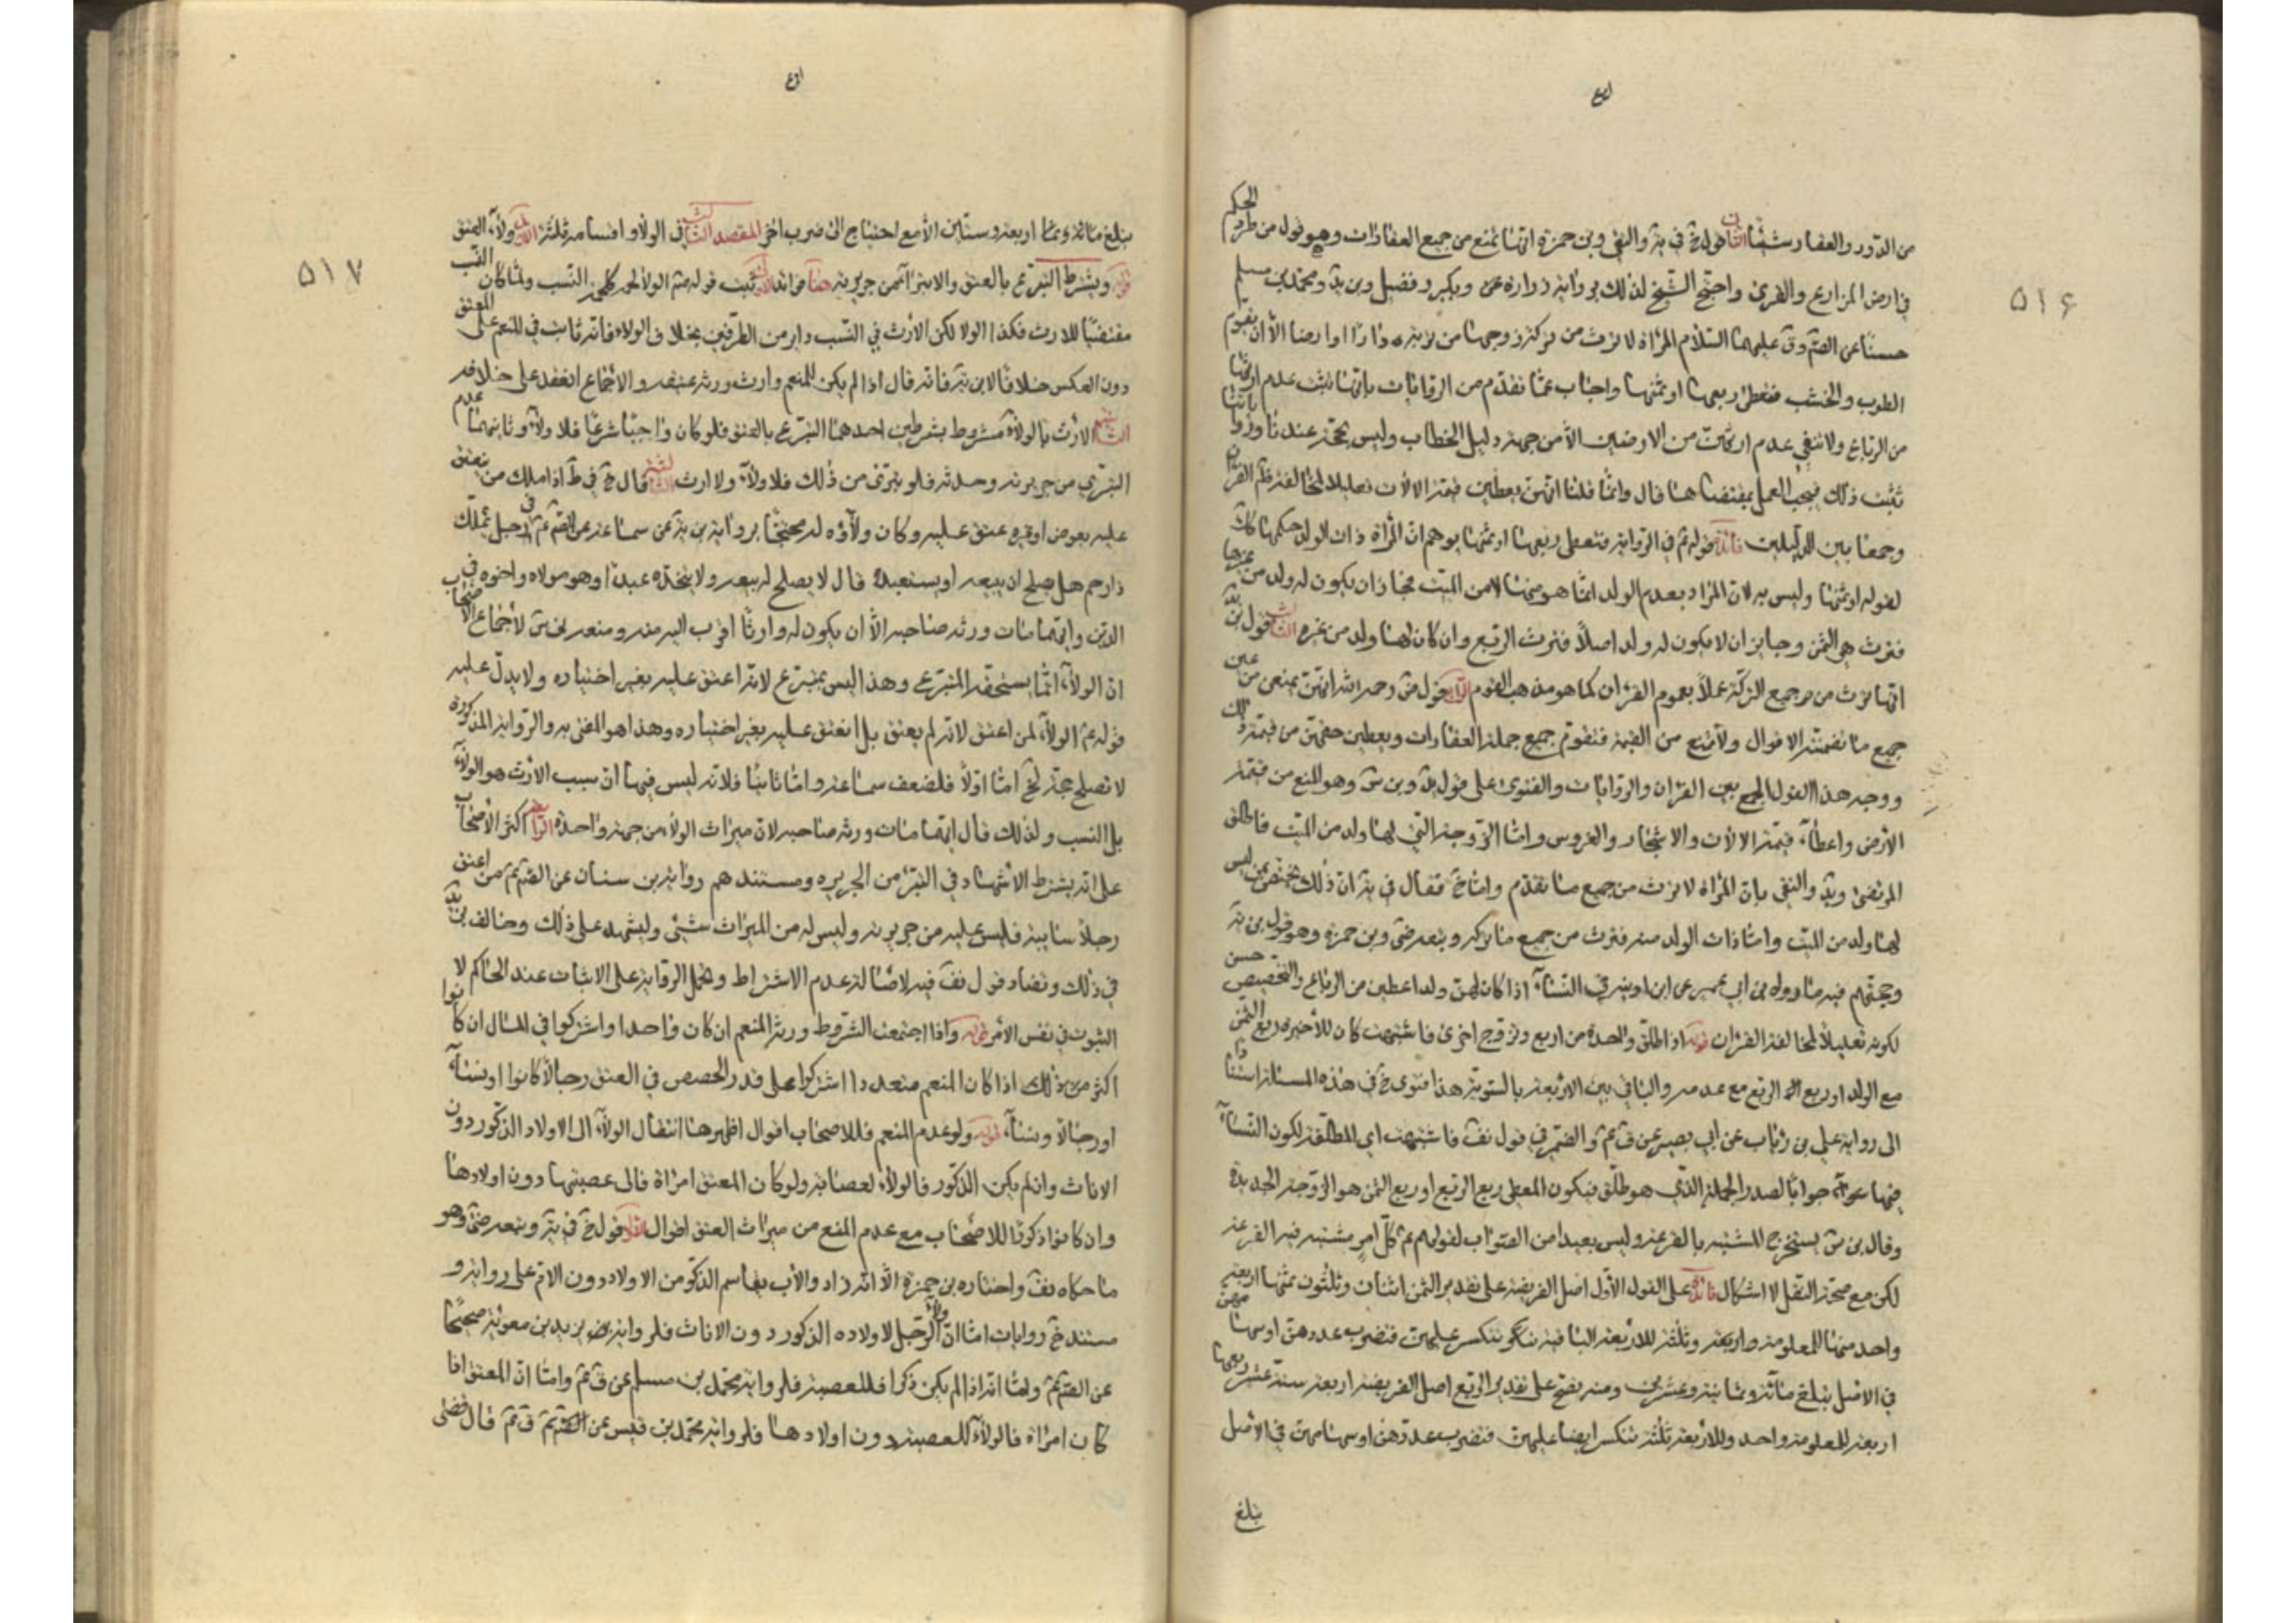 ٥١۶
من الدور والعقار شيئا الثانى قول خ فى ية والتقى وبن حمزة انها تمنع من جميع العقارات وهو قول من طرد الحكم
فى ارض المزارع والقرى واحتج الشيخ لذلك برواية زرارة وبكير وفضيل وبن يد ومحمد بن مسلم
عليهما السلام المراة لا ترث من تركة زوجها من تربة دار او ارض الا ان يقوم
الطوب والخشب فتعطى ربعها او ثمنها واجاب عما تقدم من الروايات بانها تثبت عدم ارثها
من الرباع ولا تنفى عدم ارثهن من الارضين الا من جهة دليل الخطاب وليس بحجة عندنا واذا
ثبت ذلك فيجب العمل بمقتضاها قال وانما قلنا انهن يعطين قيمة الالات تقليلا لمخالفة القران
وجمعا بين الدليلين فائدة قوله فى الرواية فتعطى ربعها او ثمنها يوهم ان المراة ذات الولد حكمها كذلك
لقوله او ثمنها وليس به لان المراد بعدم الولد انما هو منها لا من الميت فجاز ان يكون له ولد من غيرها
فترث هى الثمن وجايز ان لا يكون له ولد اصلا فترث الربع وان كان لها ولد من غيره الثالث قول بن يد
انها ترث من جميع التركة عملا بعموم القران كما هو مذهب القوم الرابع قول ض رحمه الله انهن يمنعن من عين
جميع ما تضمنته الاقوال ولا تمنع من القيمة فتقوم جميع جملة العقارات ويعطين حقهن من قيمة ذلك
ووجه هذا القول الجمع بين القران والروايات والفتوى على قول يد وبن س وهو المنع من قيمة
الارض واعطاء قيمة الالات والاشجار والغروس واما الزوجة التى لها ولد من الميت فاطلق
المرتضى ويد والتقى بان المراة لا ترث من جميع ما تقدم واما خ فقال فى ية ان ذلك يختص بمن ليس
لها ولد من الميت واما ذات الولد منه فترث من جميع ما تركه وتبعه ض وبن حمزة وهو قول بن ية
وحجتهم فيه ما رواه بن ابى عمير عن ابن اذينة فى النساء اذا كان لهن ولد اعطين من الرباع والتخصيص حسن
لكونه تقليلا لمخالفة القران قوله اذا طلق واحدة من اربع وتزوج اخرى فاشتبهت كان للاخيرة ربع الثمن
مع الولد او ربع الربع مع عدمه والباقى بين الاربعة بالسوية هذا فتوى خ فى هذه المسئلة استنادا
الى رواية على بن رئاب عن ابى بصير عن ق ع والضمير فى قول نف فاشتبهت اى المطلقة لكون النساء
جوابا لصدر الجملة الذى هو طلق فيكون المعطى ربع الربع او ربع الثمن هو الزوجة الجديدة
وقال بن س يستخرج المشتبه بالقرعة وليس بعيدا من الصواب لقولهم ع كل امر مشتبه فيه القرعة
لكن مع صحة النقل لا اشكال فائدة على القول الاول اصل الفريضة على تقدير الثمن اثنان وثلثون ثمنها اربعة
واحد منها للمعلومة وثلثة للاربعة الباقية تنكسر عليهن فتضرب عددهن او سهامهن
فى الاصل تبلغ مائة وثمانية وعشرين ومنه يصح على تقدير الربع اصل الفريضة ستة عشر ربعها
اربعة للمعلومة واحد وللاربعة ثلثة تنكسر ايضا عليهن فتضرب عددهن او سهامهن فى الاصل
تبلغ
٥١٧
المقصد الثالث فى الولاء واقسامه ثلثة الاول ولاء العتق
ويشترط التبرع بالعتق والا يتبرا من جريرته هنا فوائد الاول ثبت قوله ع الولاء لحمة كلحمة النسب ولما كان النسب
مقتضيا للارث فكذا الولا لكن الارث فى النسب داير من الطرفين بخلاف الولاء فانه ثابت للمنعم على المعتق
دون العكس خلافا لابن ية فانه قال اذا لم يكن للمنعم وارث ورثه عتيقه والاجماع انعقد على خلافه
الثانية الارث بالولاء مشروط بشرطين احدهما التبرع بالعتق فلو كان واجبا شرعا فلا ولاء وثانيهما عدم
التبرى من جريرته وحدثه فلو تبرى من ذلك فلا ولاء ولا ارث الثالثة قال خ فى ط اذا ملك من ينعتق
عليه بعوض او غيره عتق عليه وكان ولاؤه له محتجا برواية سماعة عن الصم ع فى رجل يملك
ذا رحم هل يصلح ان يبيعه او يستعبده قال لا يصلح له بيعه ولا يتخذه عبدا وهو مولاه واخوه فى
الدين وايهما مات ورثه صاحبه الا ان يكون له وارثا اقرب اليه منه ومنعه بن س لاجماع الاصحاب
ان الولاء انما يستحقه المتبرع وهذا ليس بمتبرع لانه اعتق عليه بغير اختياره ولا يدل عليه
قوله ع الولاء لمن اعتق لانه لم يعتق بل انعتق عليه بغير اختياره وهذا هو المفتى به والرواية المذكورة
لا تصلح حجة لخ اما اولا فلضعف سماعة واما ثانيا فلانه ليس فيها ان سبب الارث هو الولاء
بل النسب ولذلك قال ايهما مات ورثه صاحبه لان ميراث الولاء من جهة واحدة الرابعة اكثر الاصحاب
على انه يشترط الاشهاد فى التبرى من الجريرة ومستندهم رواية بن سنان عن الصم ع من اعتق
رجلا سايبة فليس عليه من جريرته وليس له من الميراث شئ وليشهد على ذلك وخالف بن يد
فى ذلك قول نف فيه لاصالة عدم الاشتراط وتحمل الرواية على الاثبات عند الحاكم لا
الثبوت فى نفس الامر قوله واذا اجتمعت الشروط ورثه المنعم ان كان واحدا واشتركوا فى المال ان كانوا
اكثر من ذلك اذا كان المنعم متعددا اشتركوا على قدر الحصص فى العتق رجالا كانوا او نساء
او رجالا ونساء قوله ولو عدم المنعم فللاصحاب اقوال اظهرها انتقال الولاء الى الاولاد الذكور دون
الاناث وان لم يكن الذكور فالولاء لعصابته ولو كان المعتق امراة فالى عصبتها دون اولادها
وان كانوا ذكورا للاصحاب مع عدم المنعم من ميراث العتق اقوال الاول قول خ فى ية وتبعه ض وهو
ما حكاه نف واختاره بن حمزة الا انه زاد والاب يقاسم الذكر من الاولاد دون الام على رواية و
مستند خ روايات اما ان ولاء الرجل لاولاده الذكور دون الاناث فلرواية بريد بن معوية صحيحا
عن الصم ع واما انه اذا لم يكن ذكرا فللعصبة فلرواية محمد بن مسلم عن ق ع واما ان المعتق اذا
كان امراة فالولاء للعصبة دون اولادها فلرواية محمد بن قيس عن ق ع قال قضى